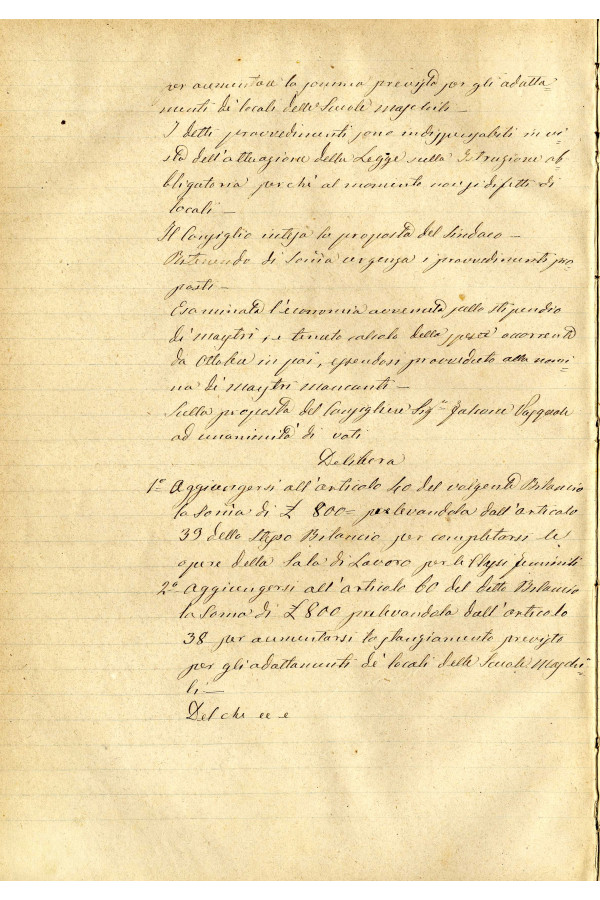 per aumentare la somma prevista per gli adatta=
menti de' locali delle Scuole maschili —
I detti provvedimenti sono indispensabili in vi=
sta dell'attuazione della Legge sulla Istruzione ob=
bligatoria perchè al momento non si difetti di
locali —
Il Consiglio intesa la proposta del Sindaco —
Ritenendo di Soma urgenza i provvedimenti pro=
posti —
Esaminata l'economia avvenuta sullo stipendio
di maestri, e tenuto calcolo della spesa occorrente
da Ottobre in poi, essendosi provveduto alla nomi=
na di Maestri mancanti —
Sulla proposta del Consigliere Sigr Pasquale
ad unanimità di voti
Delibera
1° Aggiungersi all'articolo 40 del volgente Bilancio
la Soma di £ 800= prelevandola dall'articolo
39 dello stesso Bilancio per completarsi le
opere della Sala di Lavoro per le Classi feminili
2° Aggiungersi all'articolo 60 del detto Bilancio
la Soma di £ 800 prelevandola dall'articolo
38 per aumentarsi lo stanziamento previsto
per gli adattamenti de' locali delle Scuole Maschi=
li —
Del che